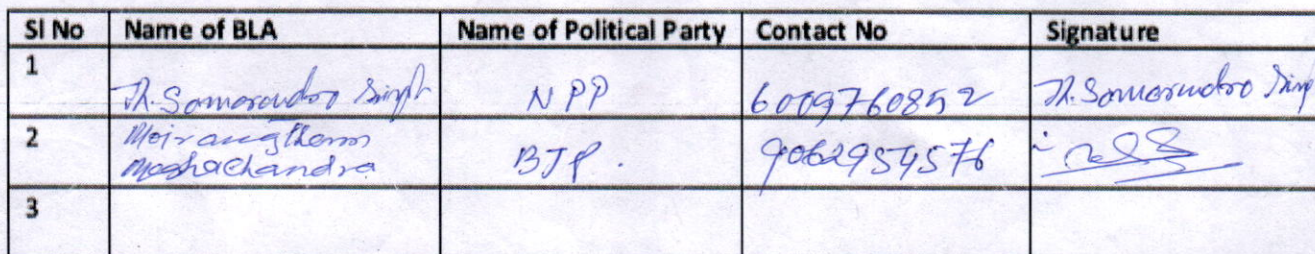 Sl No Name of BLA Name of Political Party Contact No Signature
1 Th. Somorendro Singh NPP 6009760852 Th. Somorendro Singh
2 Moirangthem
Moghachandra BJP. 9062954576
3